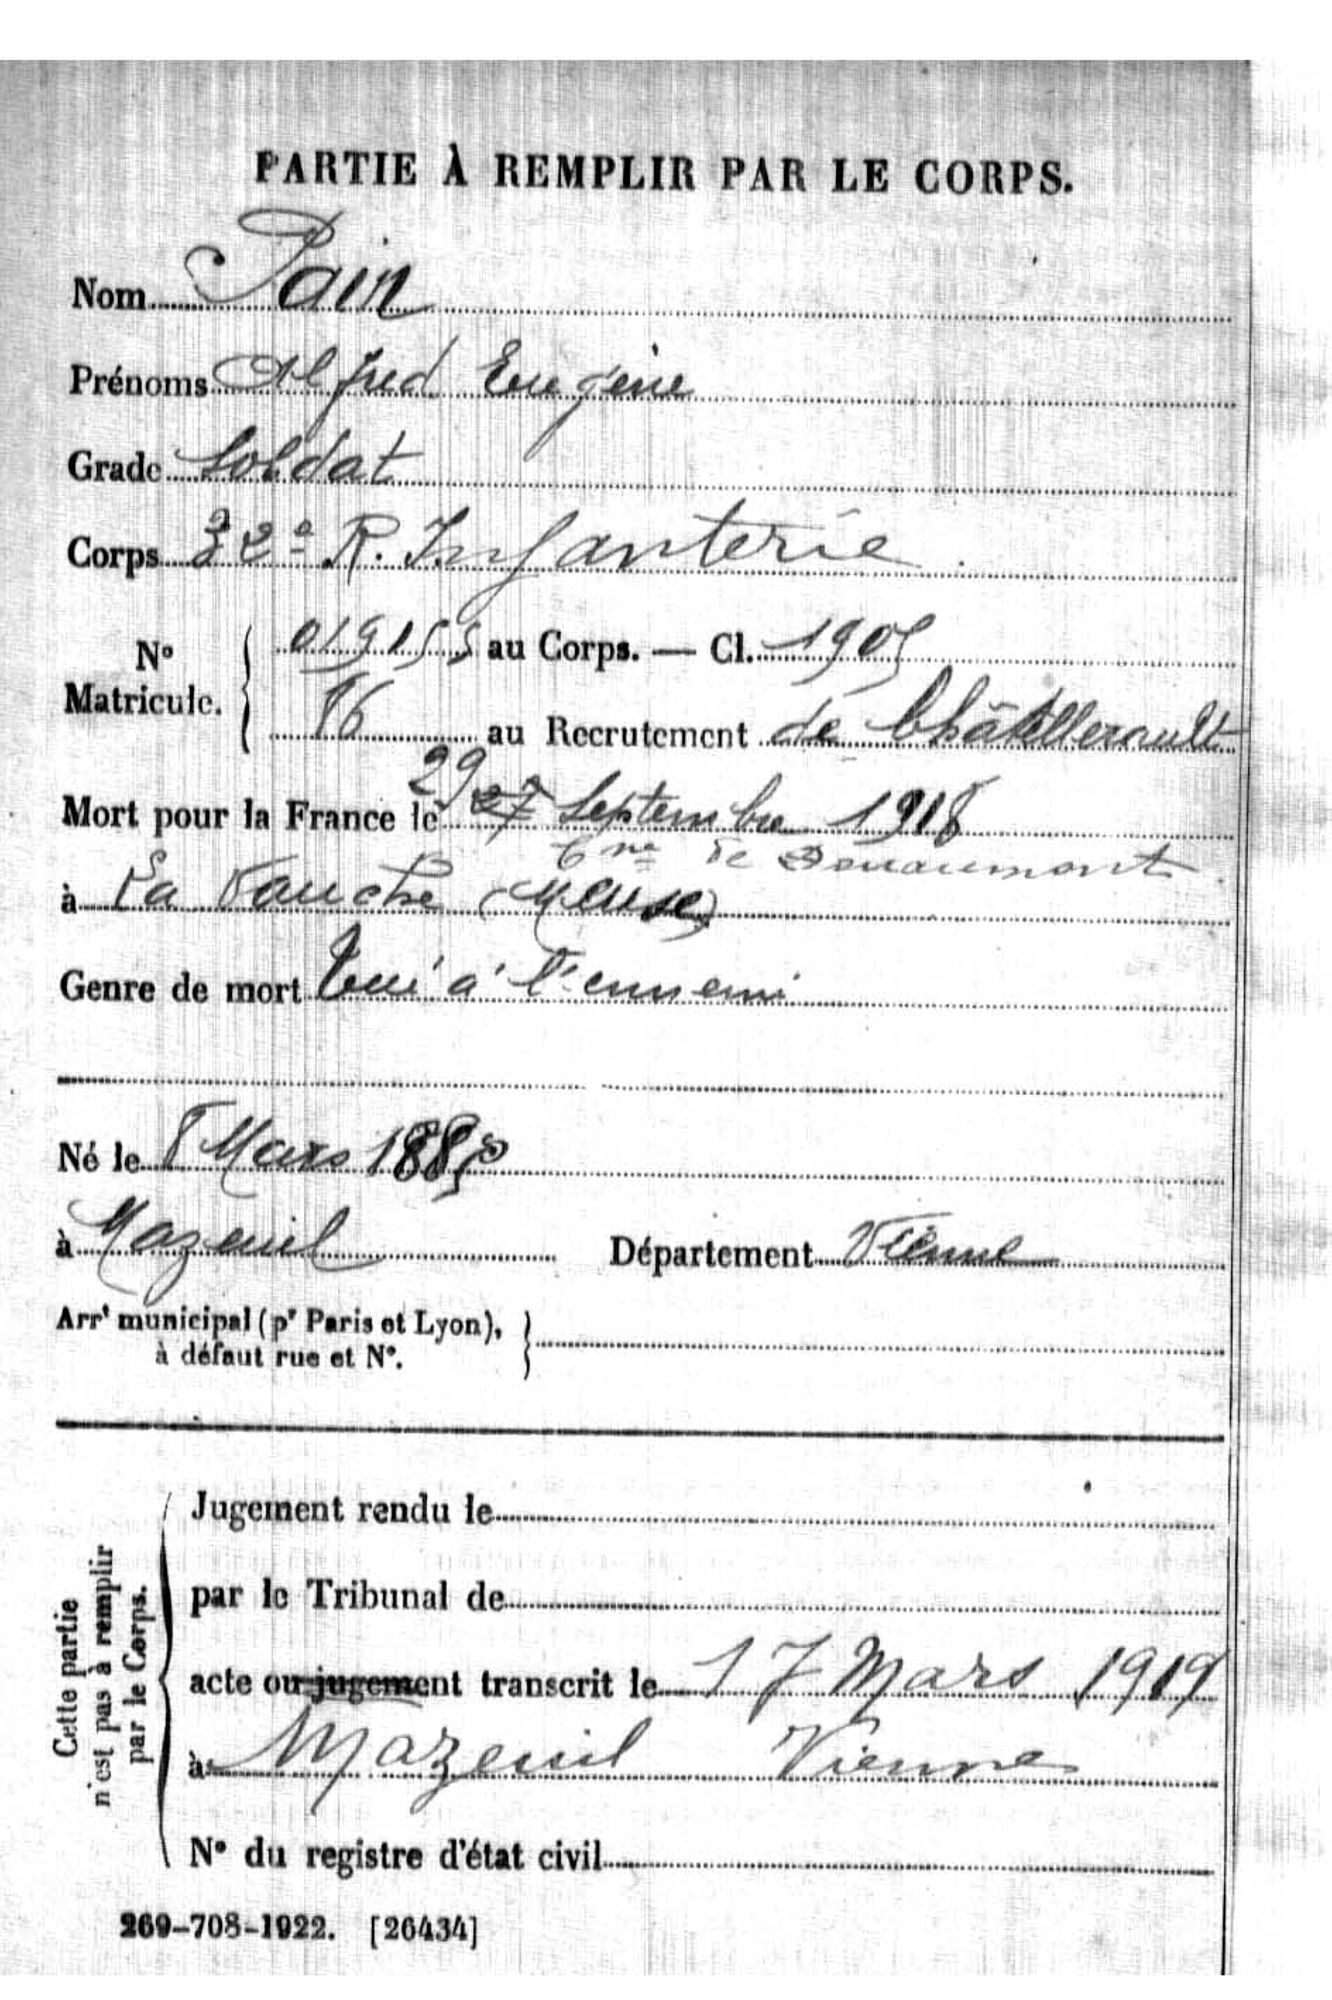 PARTIE À REMPLIR PAR LE CORPS.
Nom Pain
Prénoms Alfred Eugène
Grade Soldat
Corps 32e R. Infanterie
N° Matricule. { 019155 au Corps. — Cl. 1905
86 au Recrutement de Châtellerault
29
Mort pour la France le 27 Septembre 1918
Cne de Douaumont
à La Vauche (Meuse)
Genre de mort Tué à l'ennemi
Né le 8 Mars 1885
à Mazeuil Département Vienne
Arrt municipal (pr Paris et Lyon), à défaut rue et N°. }
Cette partie n'est pas à remplir par le Corps.
Jugement rendu le
par le Tribunal de
acte ou jugement transcrit le 17 Mars 1919
à Mazeuil Vienne
N° du registre d'état civil
269-708-1922. [26434]